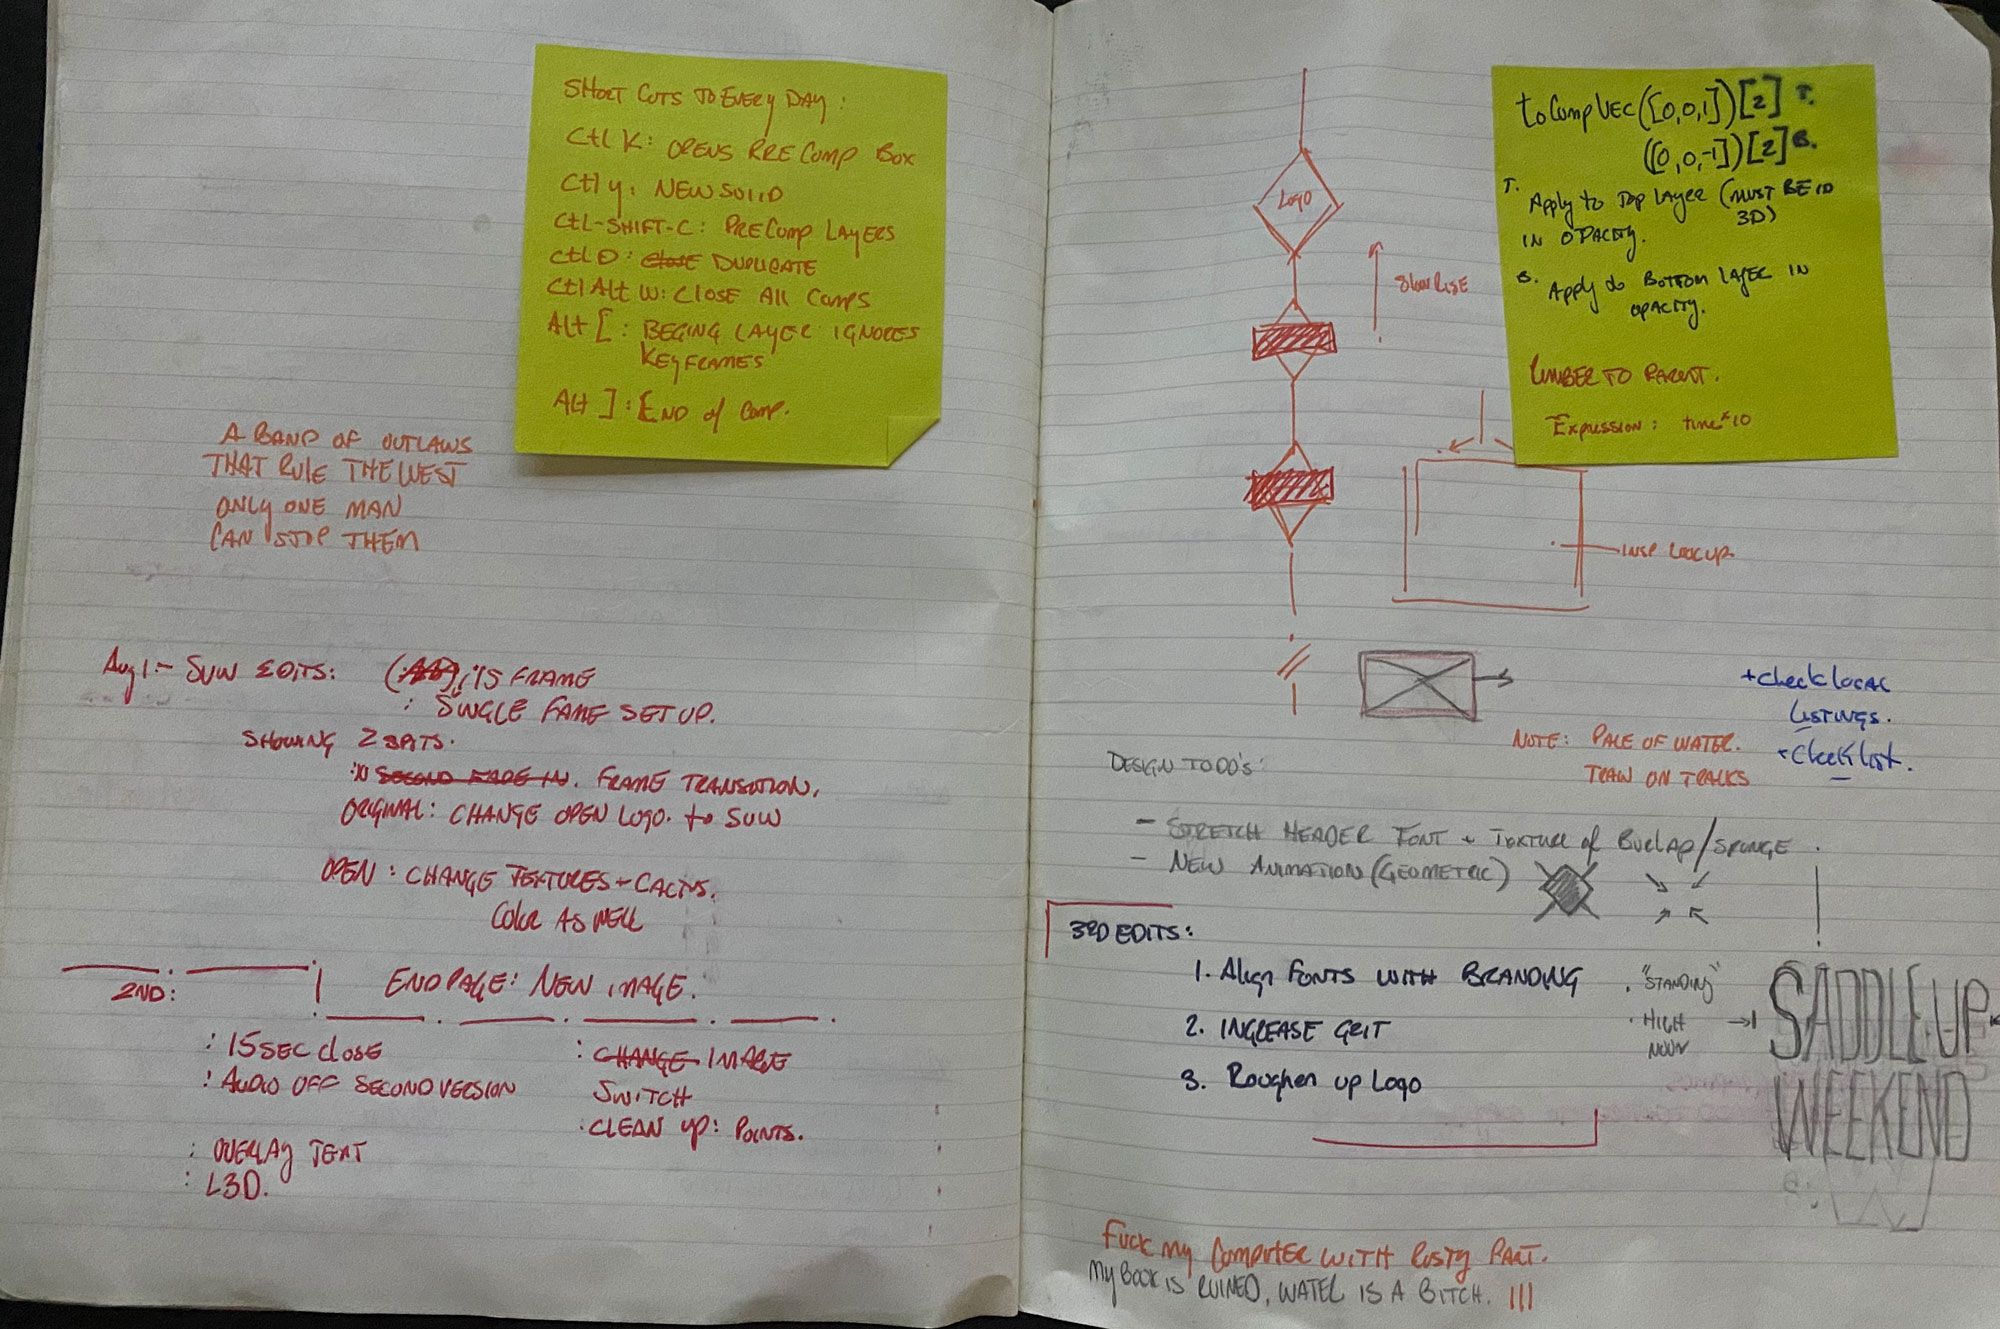 SHORT CUTS TO EVERY DAY:
Ctl K: OPENS PRE COMP BOX
Ctl y: NEW SOLID
CtL-SHIFT-C: PRECOMP LAYERS
CtL D: CLOSE DUPLICATE
Ctl Alt W: CLOSE All COMPS
Alt [: BEGING LAYER IGNORES
KEYFRAMES
Alt ]: END of Comp.
A BAND OF OUTLAWS
THAT RULE THE WEST
ONLY ONE MAN
CAN STOP THEM
Aug 1 - SUW EDITS: :15 FRAME
: SINGLE FAME SET UP.
SHOWING 2 SPOTS.
SECOND FADE IN. FRAME TRANSITION.
ORIGINAL: CHANGE OPEN LOGO. to SUW
OPEN: CHANGE TEXTURES + CACTUS.
Color AS WELL
END PAGE: NEW IMAGE.
2ND:
: 15 SEC close
: AUDIO OFF SECOND VERSION
: OVERLAY TEXT
: L3D.
: CHANGE IMAGE
SWITCH
. CLEAN UP: POINTS.
toCompVEC([0,0,1])[2] T.
([0,0,-1])[2] B.
T. Apply to Top Layer (MUST BE IN
3D)
IN OPACITY.
B. Apply to BOTTOM LAYER IN
OPACITY.
NUMBER TO PARENT.
Expression: time*10
LOGO
SLOW RISE
INSP LOCUP.
+ Check local
LISTINGS.
+ Checklist.
NOTE: PALE OF WATER.
TRAIN ON TRACKS
DESIGN TO DO'S:
- STRETCH HEADER FONT + TEXTURE of BURLAP/SPUNGE
- NEW ANIMATION (GEOMETRIC)
3RD EDITS:
1. Align FONTS WITH BRANDING
2. INCREASE GRIT
3. Roughen up Logo
. "STANDING"
. HIGH
NOON
SADDLE-UP
WEEKEND
Fuck my Computer WITH Rusty PART.
My BOOK IS RUINED, WATER IS A BITCH. !!!